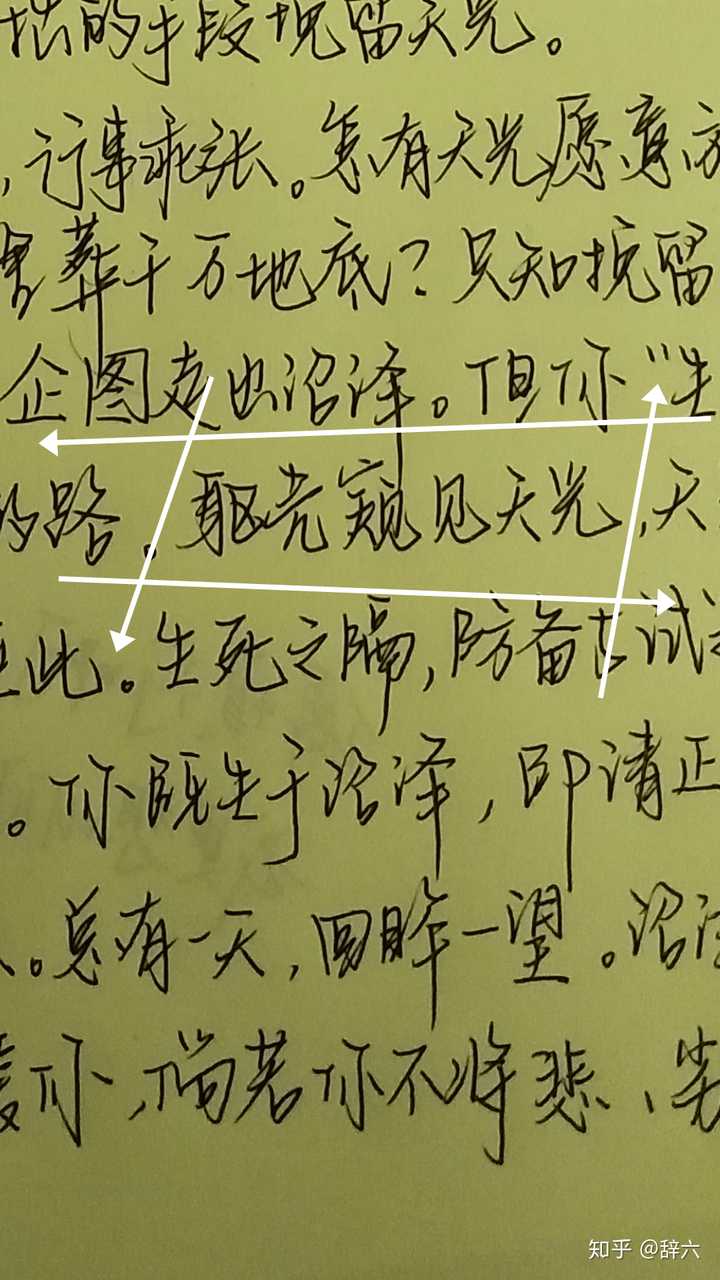 拙的手段挽留天光。
，行事乖张。怎有天光愿意
葬千万地底？只知挽留
企图走出沼泽。但你“生
的路。躯壳窥见天光，天
此。生死之隔，防备去试
。你既生于沼泽，即请正
。总有一天，回眸一望。沼泽
你，倘若你不将悲、
知乎 @辞六